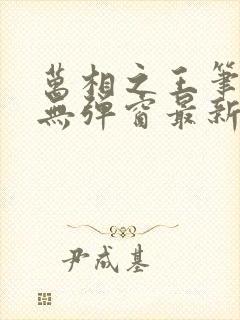 萬相之王筆
無彈窗最新
尹成基